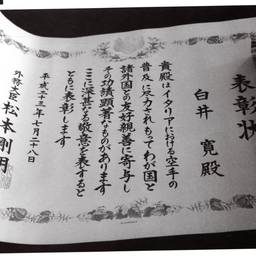 表彰状
白井 寛殿
貴殿はイタリアにおける空手の
普及に尽力されもってわが国と
諸外国との友好親善に寄与し
その功績顕著なものがあります
ここに深甚なる敬意を表すると
ともに表彰します
平成二十三年七月二十八日
外務大臣 松本剛明